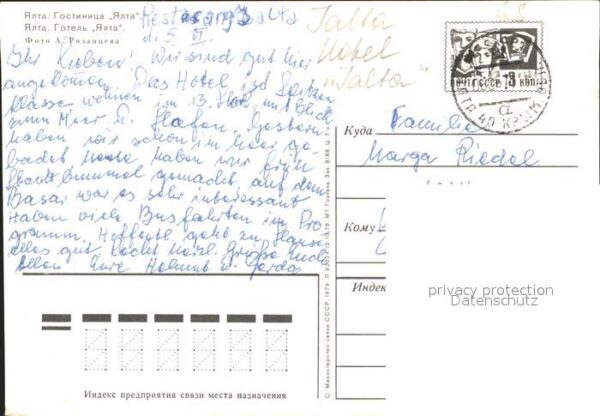 Ялта. Гостиница „Ялта“.
Ялта. Готель „Ялта“.
Фото А. Рязанцева
Restaurang Jalta
d. 5. VI.
Jalta
Hotel
"Jalta"
Ihr Lieben! Wir sind gut hier
angekommen. Das Hotel ist Spitzen
klasse wohnen im 13. Stock, mit Blick
zum Meer u. Hafen. Gestern
haben wir schon im Meer ge-
badet heute haben wir früh
Stadtbummel gemacht, auf dem
Basar war es sehr interessant
Haben viele Busfahrten im Pro
gramm. Hoffentl. geht es zu Hause
alles gut. Recht herzl. Grüße Euch
allen Eure Helmut u. Gerda
ПОЧТА СССР
Куда Familie
Marga Riedel
Кому
Индекс
privacy protection
Datenschutz
© Министерство связи СССР. 1979
Индекс предприятия связи места назначения